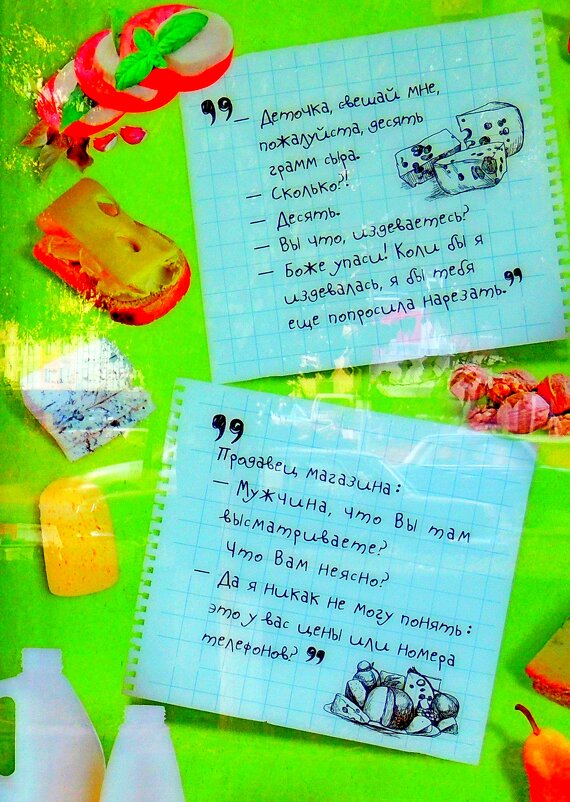 ❟❟— Деточка, свешай мне,
пожалуйста, десять
грамм сыра.
— Сколько?!
— Десять.
— Вы что, издеваетесь?
— Боже упаси! Коли бы я
издевалась, я бы тебя
еще попросила нарезать.❟❟
❟❟
Продавец магазина:
— Мужчина, что Вы там
высматриваете?
Что Вам неясно?
— Да я никак не могу понять:
это у вас цены или номера
телефонов? ❟❟